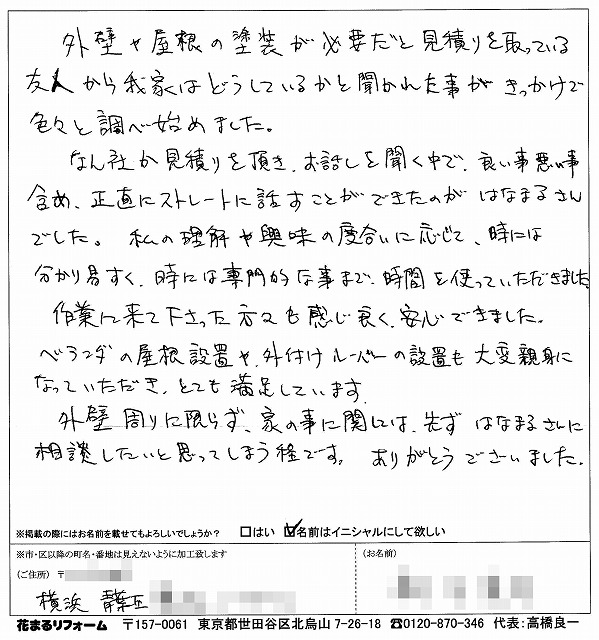 外壁や屋根の塗装が必要だと見積りを取っている
友人から我家はどうしているかと聞かれた事がきっかけで
色々と調べ始めました。
なん社か見積りを頂き、お話しを聞く中で、良い事悪い事
含め、正直にストレートに話すことができたのがはなまるさん
でした。 私の理解や興味の度合いに応じて、時には
分かり易すく、時には専門的な事まで、時間を使っていただきました
作業に来て下さった方々も感じ良く、安心できました。
ベランダの屋根設置や、外付けルーバーの設置も大変親身に
なっていただき、とても満足しています。
外壁周りに限らず、家の事に関しては、先ずはなまるさんに
相談したいと思ってしまう程です。 ありがとうございました。
※掲載の際にはお名前を載せてもよろしいでしょうか? □はい ☑名前はイニシャルにして欲しい
※市・区以降の町名・番地は見えないように加工致します
(ご住所) 〒
(お名前)
横浜 青葉区
花まるリフォーム 〒157-0061 東京都世田谷区北烏山 7-26-18 ☎0120-870-346 代表:高橋良一